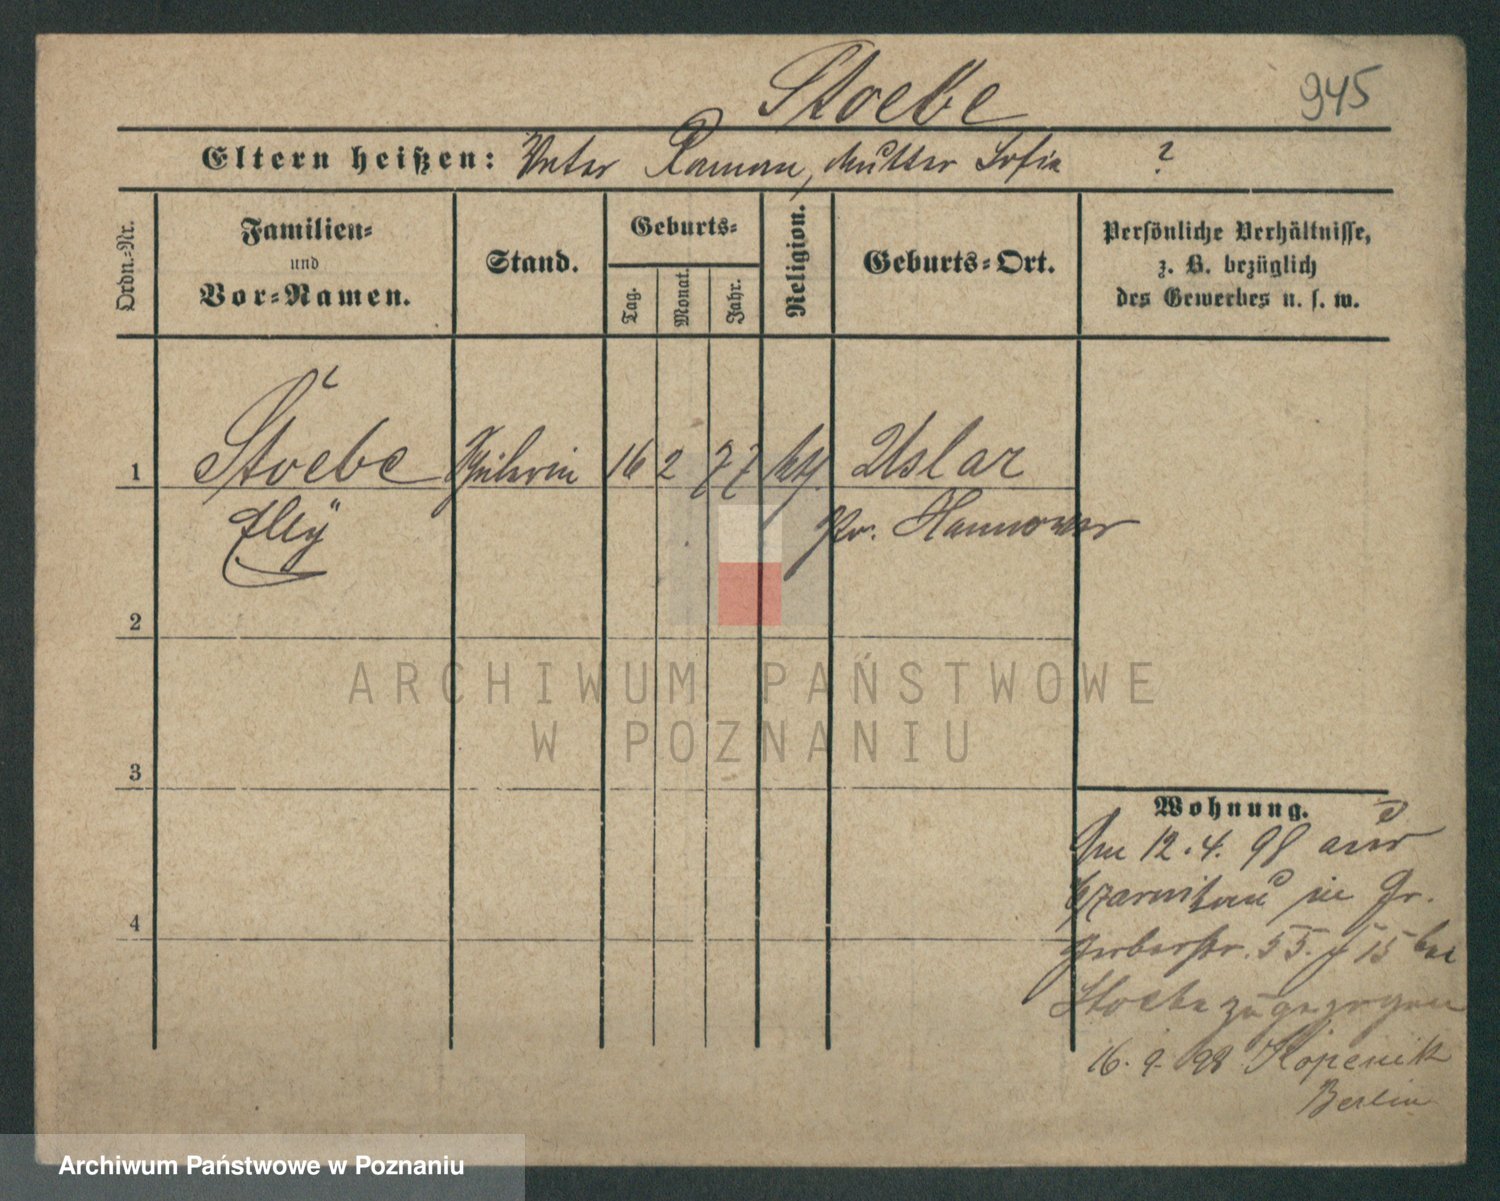 Stoebe
945
Eltern heißen: Vater Roman, Mutter Sofia ?
Ordn.-Nr.
Familien-
und
Vor-Namen.
Stand.
Geburts-
Tag.
Monat.
Jahr.
Religion.
Geburts-Ort.
Persönliche Verhältnisse,
z. B. bezüglich
des Gewerbes u. s. w.
1 Stoebe Schülerin 16 2 77 Uslar
Elly Pr. Hannover
2
ARCHIWUM PAŃSTWOWE
W POZNANIU
3
Wohnung.
Am 12. 4. 98 aus
Czarnikau in Gr.
Gerberstr. 55. J 15 bei
Stoebe zugezogen
4
16. 9. 98 Köpenik
Berlin
Archiwum Państwowe w Poznaniu